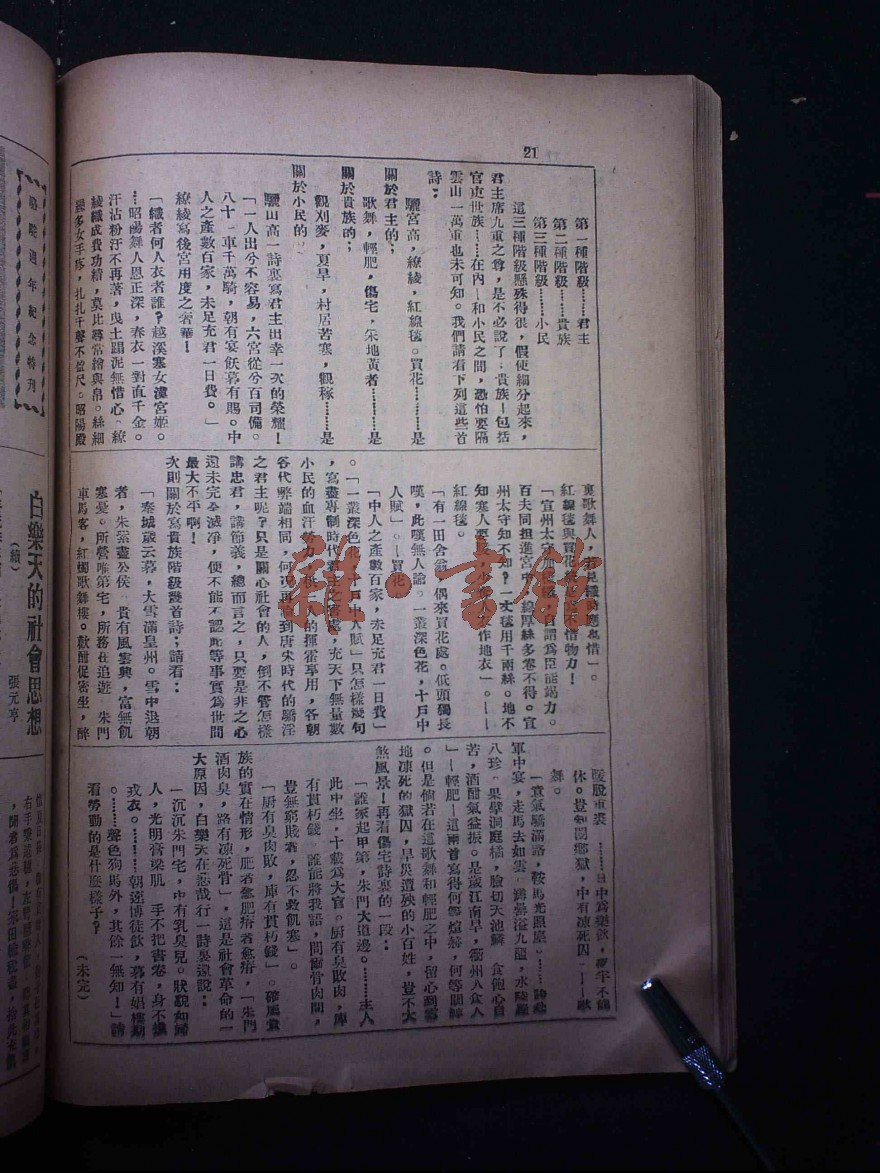 21
第一種階級………君主
第二種階級………貴族
第三種階級………小民
這三種階級懸殊得很，假使細分起來，
君主席九重之尊，是不必說了；貴族—包括
官吏世族……在內—和小民之間，恐怕要隔
雲山一萬重也未可知。我們請看下列這些首
詩：
驪宮高，繚綾，紅線毯。買花………是
關於君主的；
歌舞，輕肥，傷宅，朱地黃者………是
關於貴族的；
觀刈麥，夏旱，村居苦寒，觀稼………是
關於小民的。
驪山高一詩裏寫君主出幸一次的榮耀！
「一人出兮不容易，六宮從兮百司備。
八十一車千萬騎，朝有宴飫暮有賜。中
人之產數百家，未足充君一日費。」
繚綾寫後宮用度之奢華！
「織者何人衣者誰？越溪寒女漢宮姬。
…昭陽舞人恩正深，春衣一對直千金。
汗沾粉汙不再著，曳土蹋泥無惜心。繚
綾織成費功績，莫比尋常繒與帛。絲細
繰多女手疼，扎扎千聲不盈尺。昭陽殿
裏歌舞人，若見織時應也惜」。
紅線毯與買花
不惜物力！
「宣州太守加
自謂爲臣能竭力。
百夫同担進宮中，線厚絲多卷不得。宣
州太守知不知？一丈毯用千兩絲。地不
知寒人要暖，少奪人衣作地衣」。——
紅線毯。
「有一田舍翁，偶來買花處。低頭獨長
嘆，此嘆無人諭。一叢深色花，十戶中
人賦」。—買花
「中人之產數百家，未足充君一日費」
。「一叢深色花，十戶中人賦」只怎樣幾句
，寫盡專制時代君主之
，充天下無量數
小民的血汗勞力，供一人的揮霍享用，各朝
各代弊端相同，何況再論到唐宋時代的驕淫
之君主呢？只是關心社會的人，倒不管怎樣
講忠君，講節義，總而言之，只要是非之心
還未完全滅凈，便不能不認此等事實爲世間
最大不平啊！
次則關於寫貴族階級幾首詩；請看：
「秦城歲云暮，大雪滿皇州。雪中退朝
者，朱紫盡公侯。貴有風雲興，富無飢
寒憂。所營唯第宅，所務在追遊。朱門
車馬客，紅燭歌舞樓。歡酣促密坐，醉
暖脫重裘。……日中爲樂飲，夜半不能
休。豈知閿鄉獄，中有凍死囚。」——歌
舞。
「意氣驕滿路，鞍馬光照塵。……誇赴
軍中宴，走馬去如雲。罇罍溢九醞，水陸羅
八珍。果擘洞庭橘，膾切天池鱗。食飽心自
若，酒酣氣益振。是歲江南旱，衢州人食人
」—輕肥—這兩首寫得何等煊赫，何等闊綽
。但是倘若在這歌舞和輕肥之中，留心到霧
地凍死的獄囚，旱災遭殃的小百姓，豈不大
煞風景！再看傷宅詩裏的一段：
「誰家起甲第，朱門大道邊。………主人
此中坐，十載爲大官。厨有臭敗肉，庫
有貫朽錢。誰能將我語，問爾骨肉間，
豈無窮賤者，忍不救飢寒」。
「厨有臭肉敗，庫有貫朽錢」。確爲貴
族的實在情形，肥者愈肥瘠者愈瘠，「朱門
酒肉臭，路有凍死骨」，這是社會革命的一
大原因，白樂天在悲哉行一詩裏還說：
「沉沉朱門宅，中有乳臭兒。狀貌如婦
人，光明膏梁肌。手不把書卷，身不擐
戎衣。………朝從博徒飲，暮有娼樓期
。………聲色狗馬外，其餘一無知！」請
看勞動的是什麼樣子？
（未完）
駱駝週年紀念特刊
白樂天的社會思想
（續）
張元亨
雜·書館